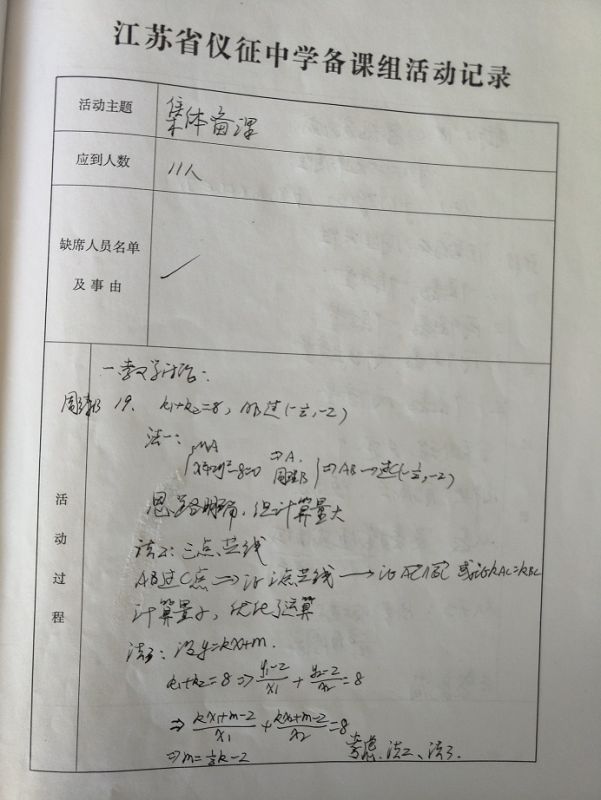 江苏省仪征中学备课组活动记录
活动主题
集体备课
应到人数
11人
缺席人员名单
及事由
活动过程
一、
19. k₁+k₂=8, AB过(-1/2,-2)
法一:
MA
x²+2y²-8=0 ⇒A.
同理B ⇒AB→过(-1/2,-2)
思路明确, 但计算量大
法二: 三点共线
AB过C点⇒证三点共线→证AC∥BC 或证kAC=kBC
计算量小, 优化了运算
法3: 设y=kx+m.
k₁+k₂=8⇒(y₁-2)/x₁+(y₂-2)/x₂=8
⇒(kx₁+m-2)/x₁+(kx₂+m-2)/x₂=8
⇒m=½k-2
考虑法二、法3.